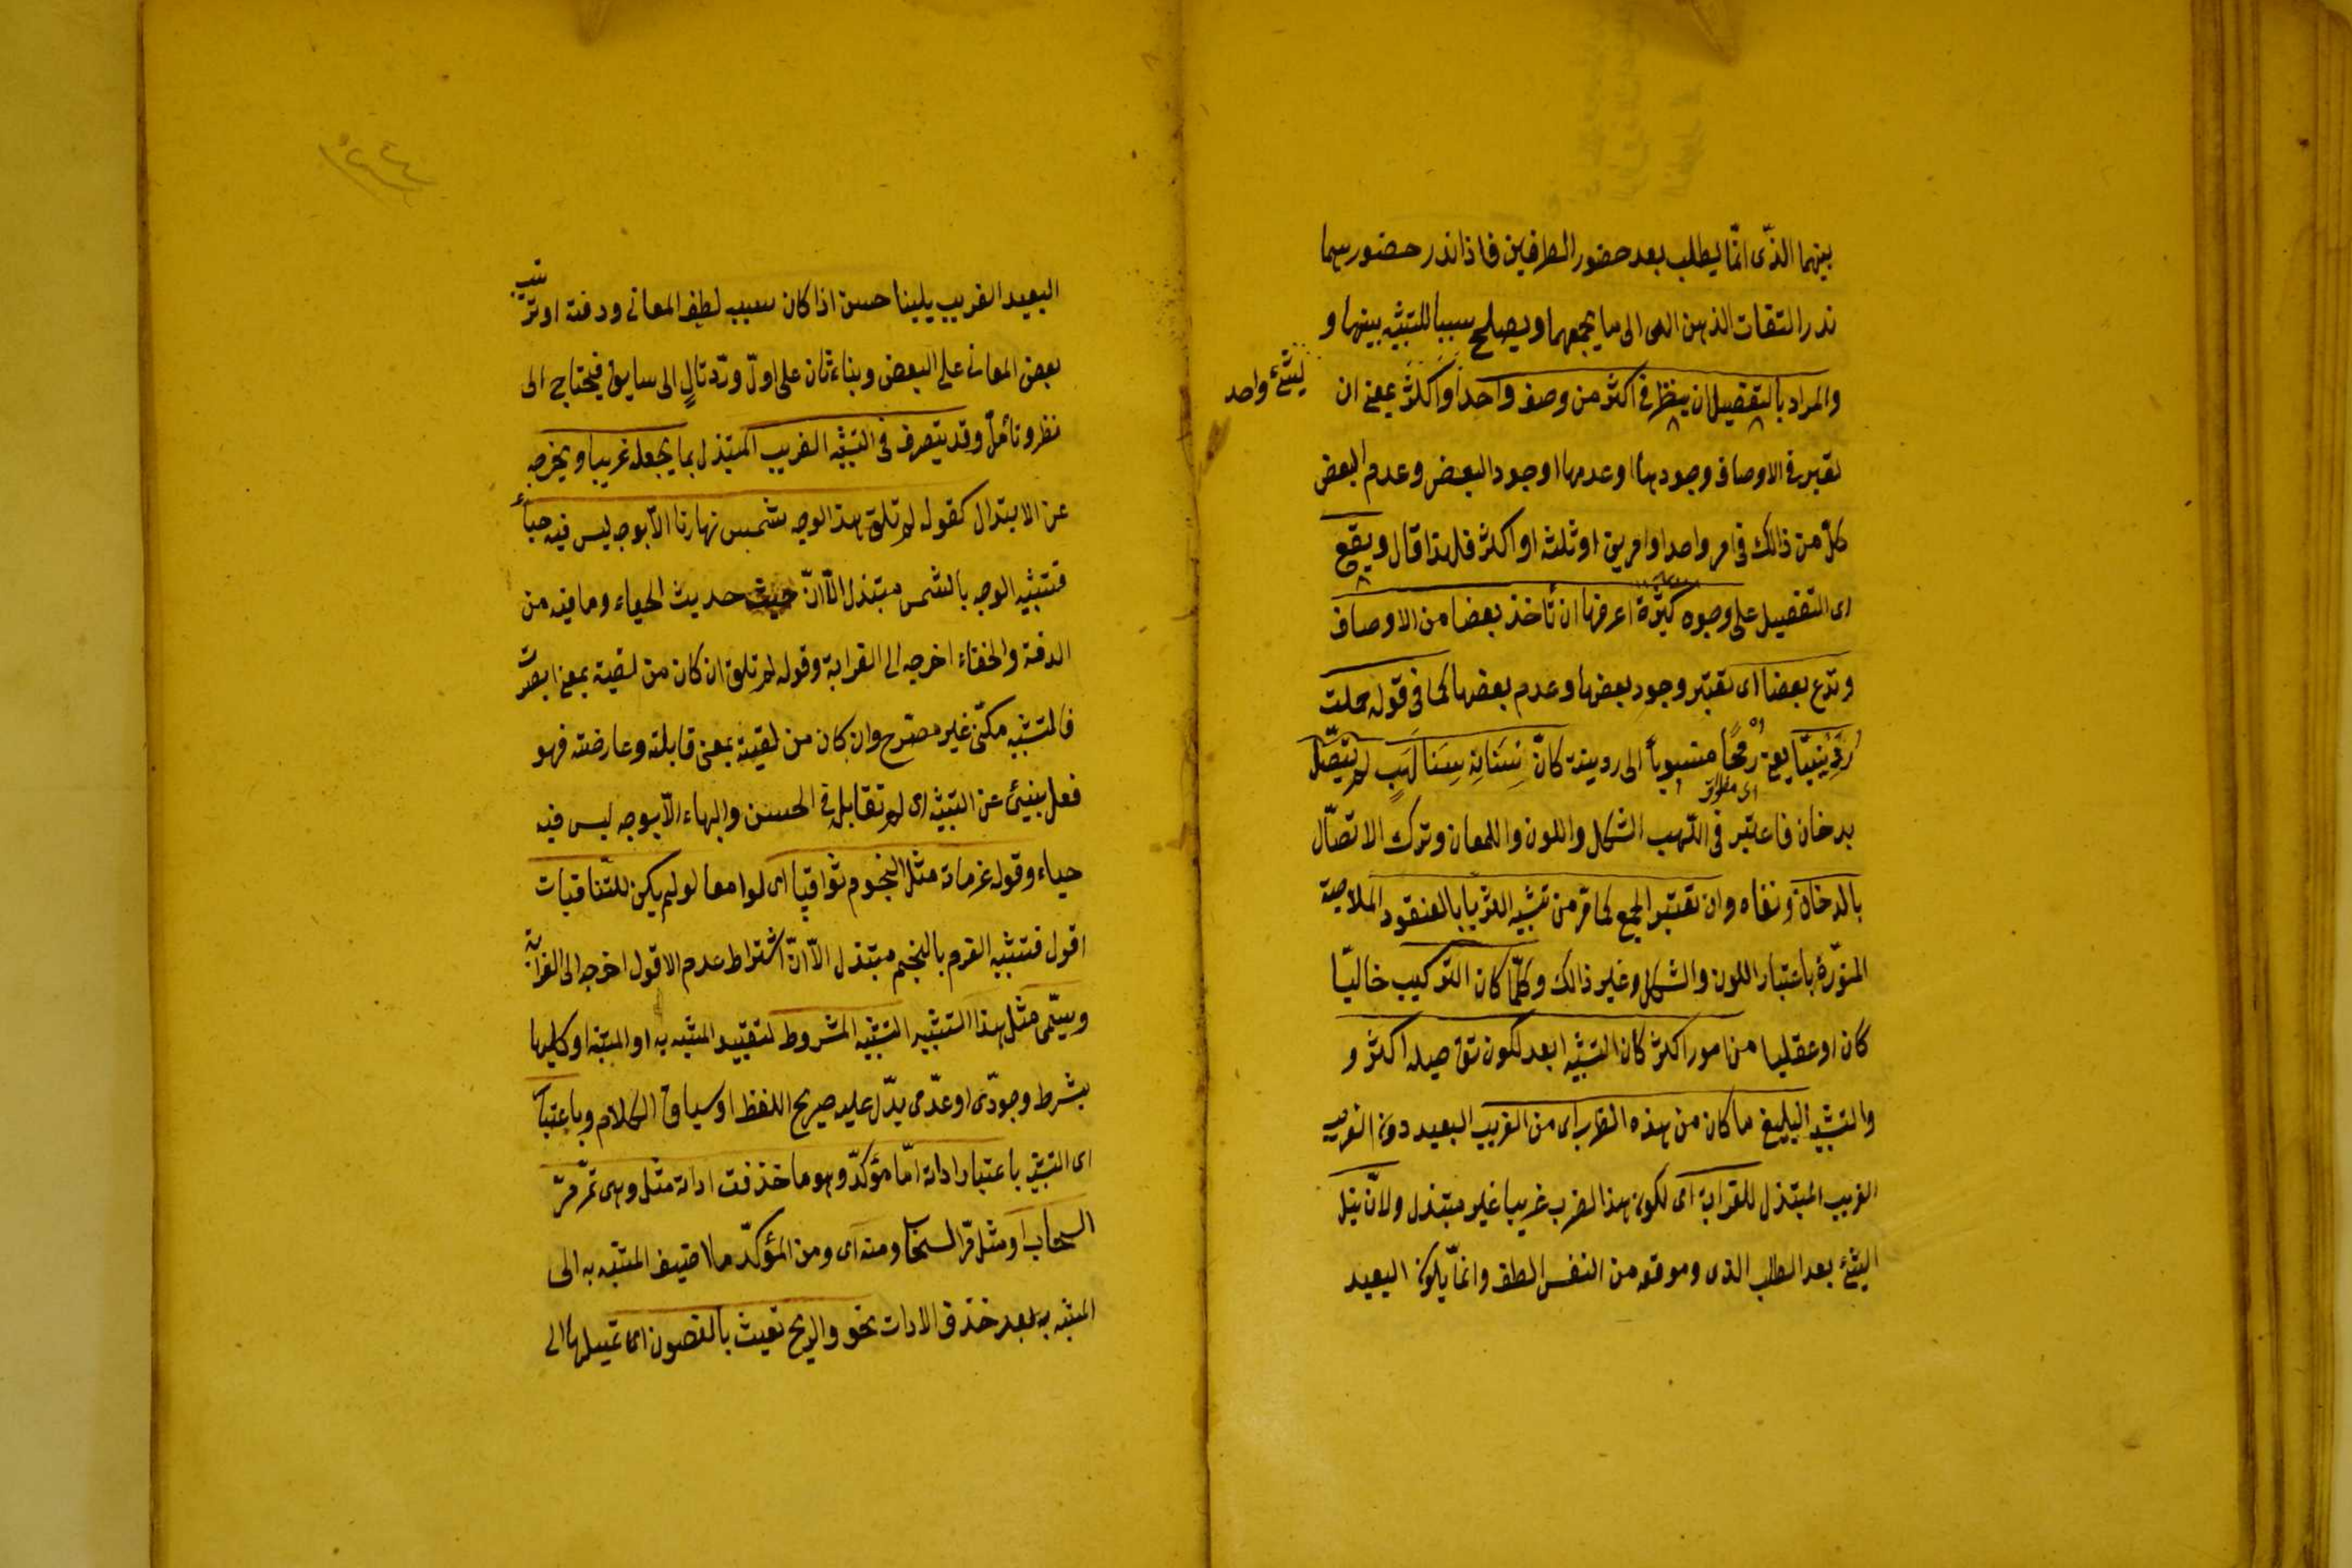 بينهما الذّى انّما يطلب بعد حضور الطرفين فاذا ندر حضورهما
ندر التقات الذهن الى الى ما يجمعهما ويصلح سببا للتشبيه بينهما و
والمراد بالتفصيل ان ينظر فى اكثر من وصف واحد او اكثر بمعنى ان
لشئ واحد
تعتبر فى الاوصاف وجودها او عدمها او وجود البعض وعدم البعض
كلّ من ذالك فى امر واحد او امرين او ثلثه او اكثر فلهذا قال ويقع
اى التفصيل على وجوه كثيرة اعرفها ان تأخذ بعضا من الاوصاف
وتدع بعضا اى تعتبر وجود بعضها وعدم بعضها كما فى قوله حملت
رُدَيْنِيّا يعنى رُمحًا منسوباً الى ردينة كانّ سِنَانه سَنَا لَهَبٍ لم يتّصل
بدخان فاعتبر فى اللّهب الشكل واللون واللمعان وترك الاتصّال
بالدخان ونفاه وان تعتبر الجمع كما مرّ من تشبيه الثريّا بالعنقود الملاحية
المنوّرة باعتبار اللون والشكل وغير ذالك وكلّما كان التركيب خاليّا
كان او عقليا من امور اكثر كان التشبيه ابعد لكون تفاصيله اكثر و
والتشبيه البليغ ما كان من هذه الضرب اى من الغريب البعيد دون القريب
القريب المبتذل للغرابة اى لكون هذا الضرب غريبا غير مبتذل ولانّ نيل
الشئ بعد الطلب الذى وموقعه من النفس الطف وانمّا يكون البعيد
البعيد الغريب بليغا حسن اذا كان سببه لطف المعانى ودقته او ترتيب
بعض المعانى على البعض وبناء ثان على اوّل وردّ تالٍ الى سابق فيحتاج الى
نظر وتأمّل وقد يتصرف فى التشبيه القريب المبتذل بما يجعله غريبا ويخرجه
عن الابتذال كقوله لم تلق هذا الوجه شمس نهارنا الّا بوجه ليس فيه حياءٌ
فتشبيه الوجه بالشمس مبتذل الّا انّ حديث الحياء وما فيه من
الدقة والخفاء اخرجه الى الغرابة وقوله لم تلق ان كان من لقيته بمعنى ابصرت
فالتشبيه مكنّى غير مصرّح وان كان من لقيته بمعنى قابلته وعارضته فهو
فعل ينبئ عن التشبيه اى لم تقابله فى الحسن والبهاء الّا بوجه ليس فيه
حياء وقوله عزماته مثل النجوم ثواقبا اى لوامعا لو لم يكن للثّاقبات
افول فتشبيه العزم بالنجم مبتذل الّا انّ اشتراط عدم الافول اخرجه الى الغرابة
ويسمّى مثل هذا التشبيه التشبيه المشروط لتقييد المشبه به او المشبه او كليهما
بشرط وجودّى او عدّمى يدّل عليه صريح اللفظ او سياق الكلام وباعتبار
اى التشبيه باعتبار اداته امّا مؤكدّ وهو ما حذفت اداته مثل وهى تمّر مرّ
السحاب او مثل مرّ السحاب ومنه اى ومن المؤكدّ ما اضيف المشبه به الى
المشبه به بعد حذف الادات نحو والريح تعبث بالغصون اى تميلها الى